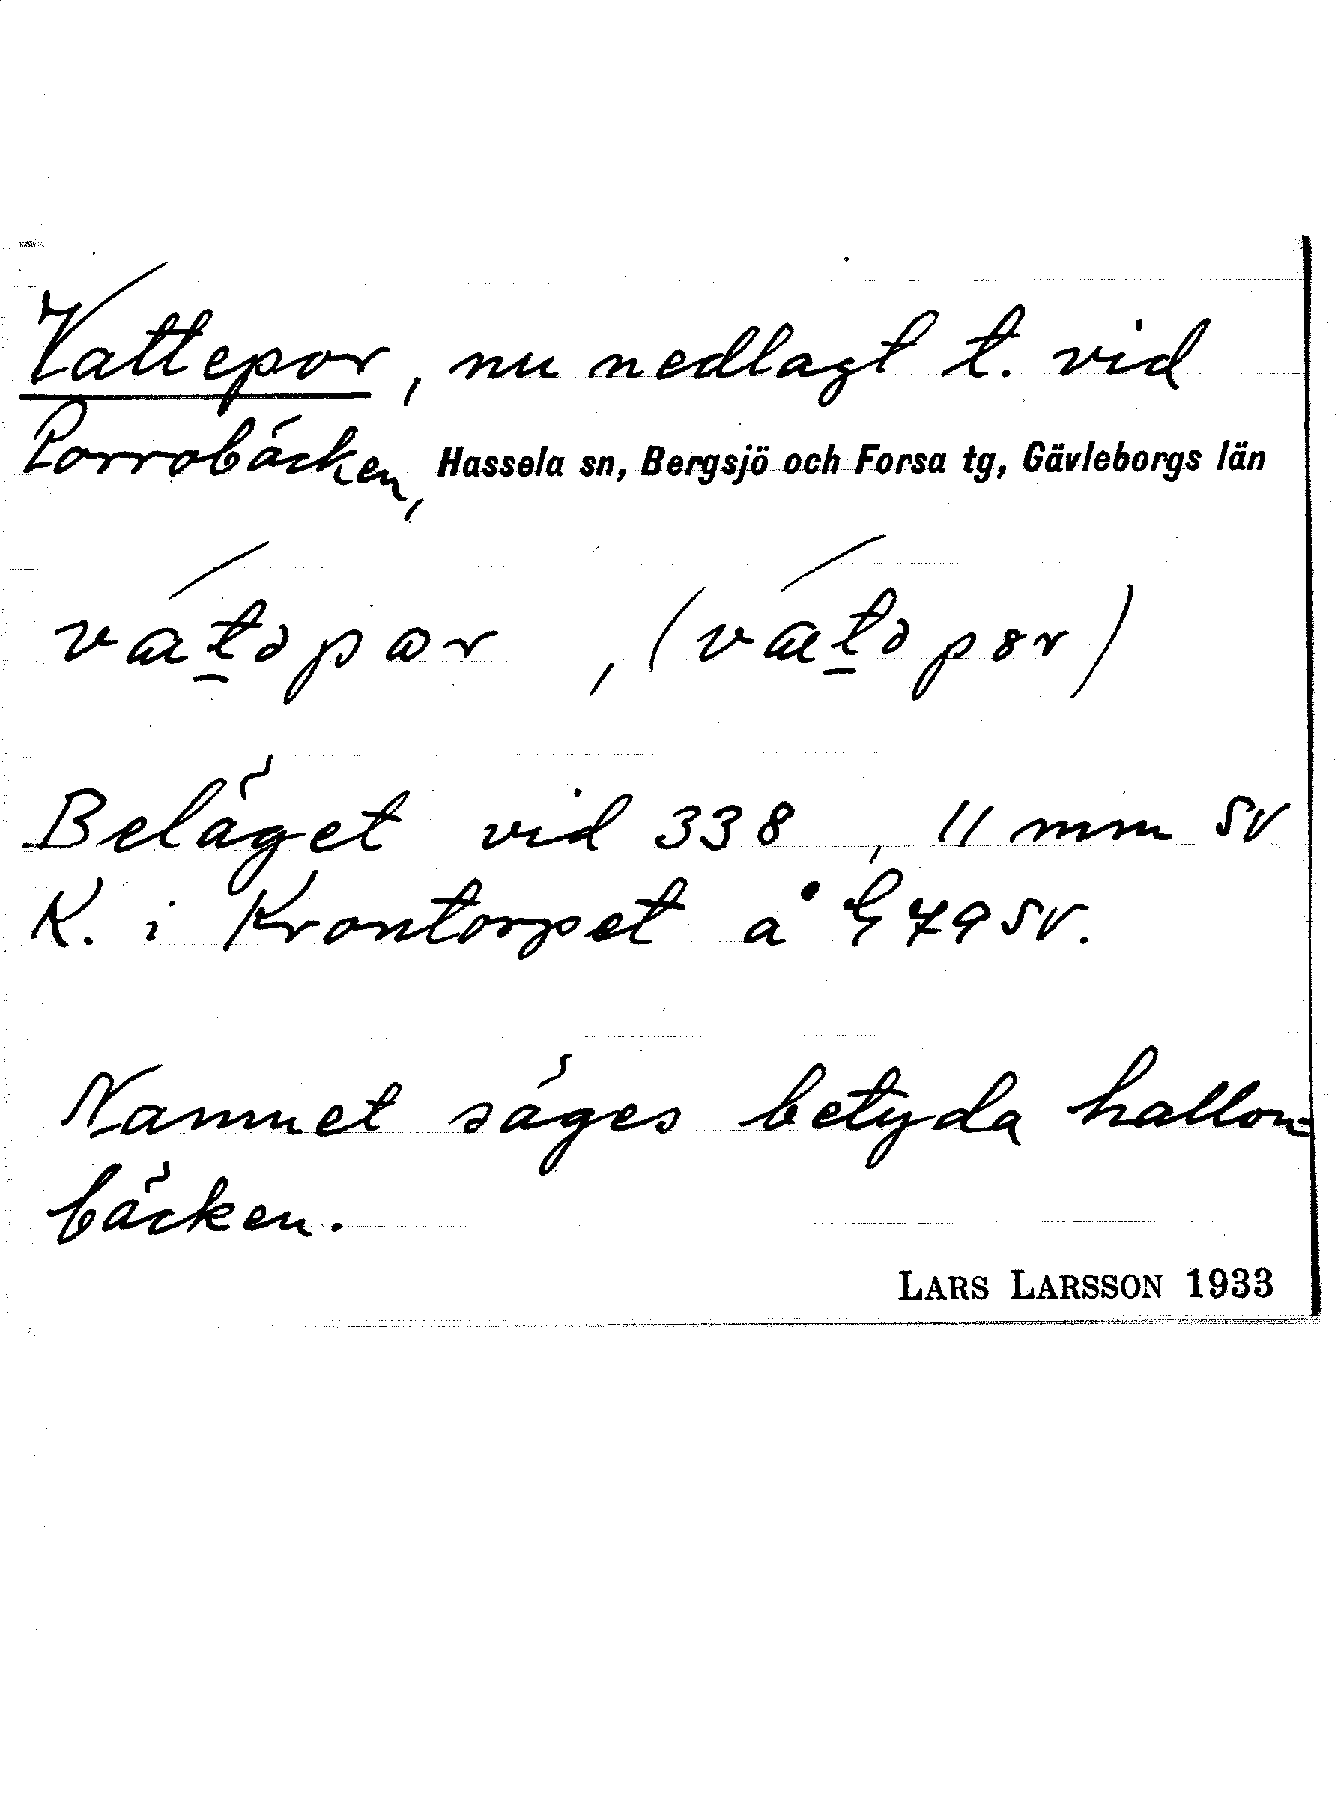 Vattepor, nu nedlagt t. vid
Porrobäcken, Hassela sn, Bergsjö och Forsa tg, Gävleborgs län
Beläget vid 338, 11 mm SV
K. i Krontorpet å G 79 SV.
Namnet säges betyda hallon-
bäcken.
LARS LARSSON 1933